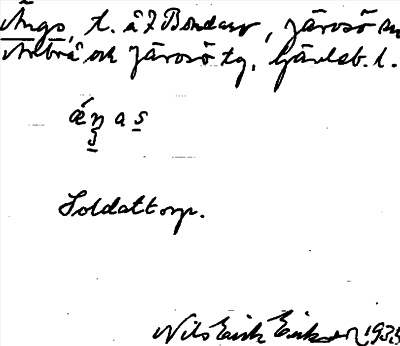 Ängs, t. å 7 Bondarv, Järvsö sn
Arbrå och Järvsö tg, Gävleb. l.
ǽŋas
Soldattorp.
Nils Erik Eriksson 1935